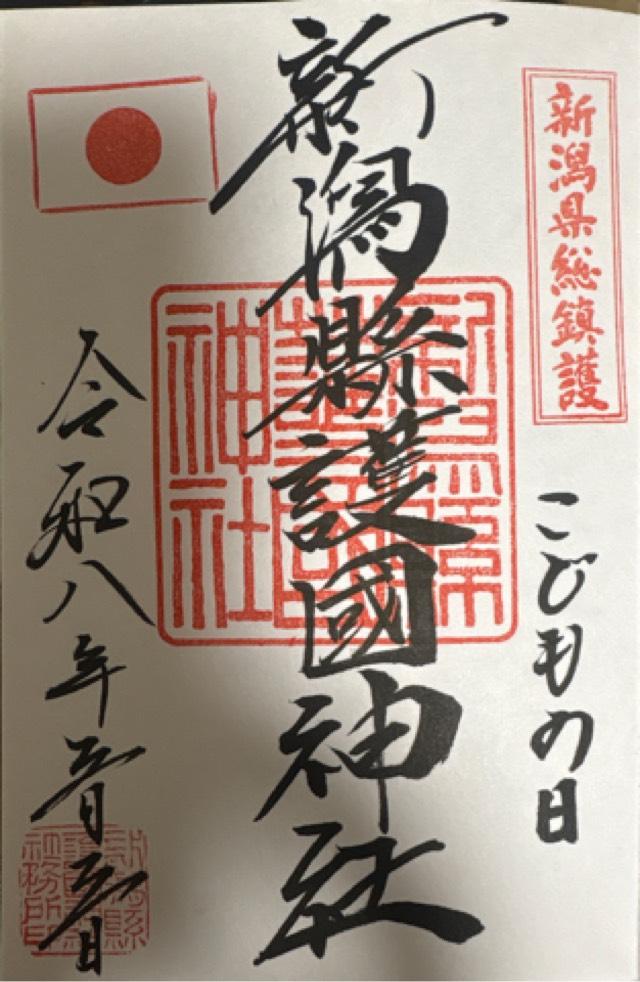 新潟県総鎮護
こどもの日
新潟縣護國神社
新潟縣
護國
神社
令和八年五月五日
新潟縣
護國神社
社務所印